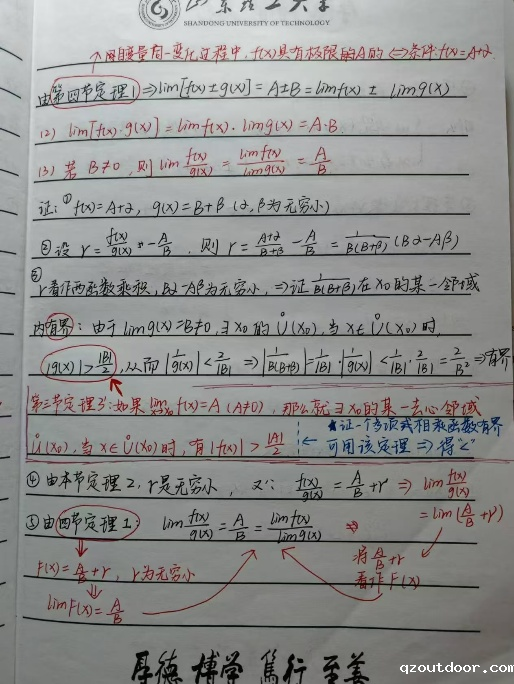 山东理工大学
SHANDONG UNIVERSITY OF TECHNOLOGY
↑ 因自变量同一变化过程中, f(x)具有极限的A的 ⇔条件: f(x)=A+α
由第四节定理1 ⇒ lim[f(x)±g(x)] = A±B = limf(x) ± limg(x)
(2) lim[f(x)·g(x)] = limf(x)·limg(x) = A·B
(3) 若 B≠0, 则 lim f(x)/g(x) = limf(x)/limg(x) = A/B
证: ① f(x)=A+α, g(x)=B+β (α,β为无穷小)
② 设 r = f(x)/g(x) - A/B, 则 r = (A+α)/(B+β) - A/B = 1/(B(B+β)) (Bα-Aβ)
③
r看作两函数乘积, Bα-Aβ为无穷小, ⇒证 1/(B(B+β)) 在 x0 的某一邻域
内有界: 由于 limg(x)=B≠0, ∃ x0 的 Ů(x0), 当 x∈Ů(x0) 时,
|g(x)| > |B|/2, 从而 |1/g(x)| < 2/|B| ⇒ |1/(B(B+β))| = 1/|B|·|1/g(x)| < 1/|B|·2/|B| = 2/B² ⇒有界
第三节定理3': 如果 lim f(x)=A (A≠0), 那么就∃x0的某一去心邻域
Ů(x0), 当 x∈Ů(x0) 时, 有 |f(x)| > |A|/2
★证一个多项式相乘函数有界
可用该定理 ⇒ 得“<”
④ 由本节定理2, r是无穷小, 又∵ f(x)/g(x) = A/B + r ⇒ lim f(x)/g(x)
= lim(A/B + r)
⑤ 由四节定理1: lim f(x)/g(x) = A/B = limf(x)/limg(x) ⇒
将 A/B + r
看作 F(x)
F(x) = A/B + r, r为无穷小
limF(x) = A/B
厚德 博学 笃行 至善
qzoutdoor.com